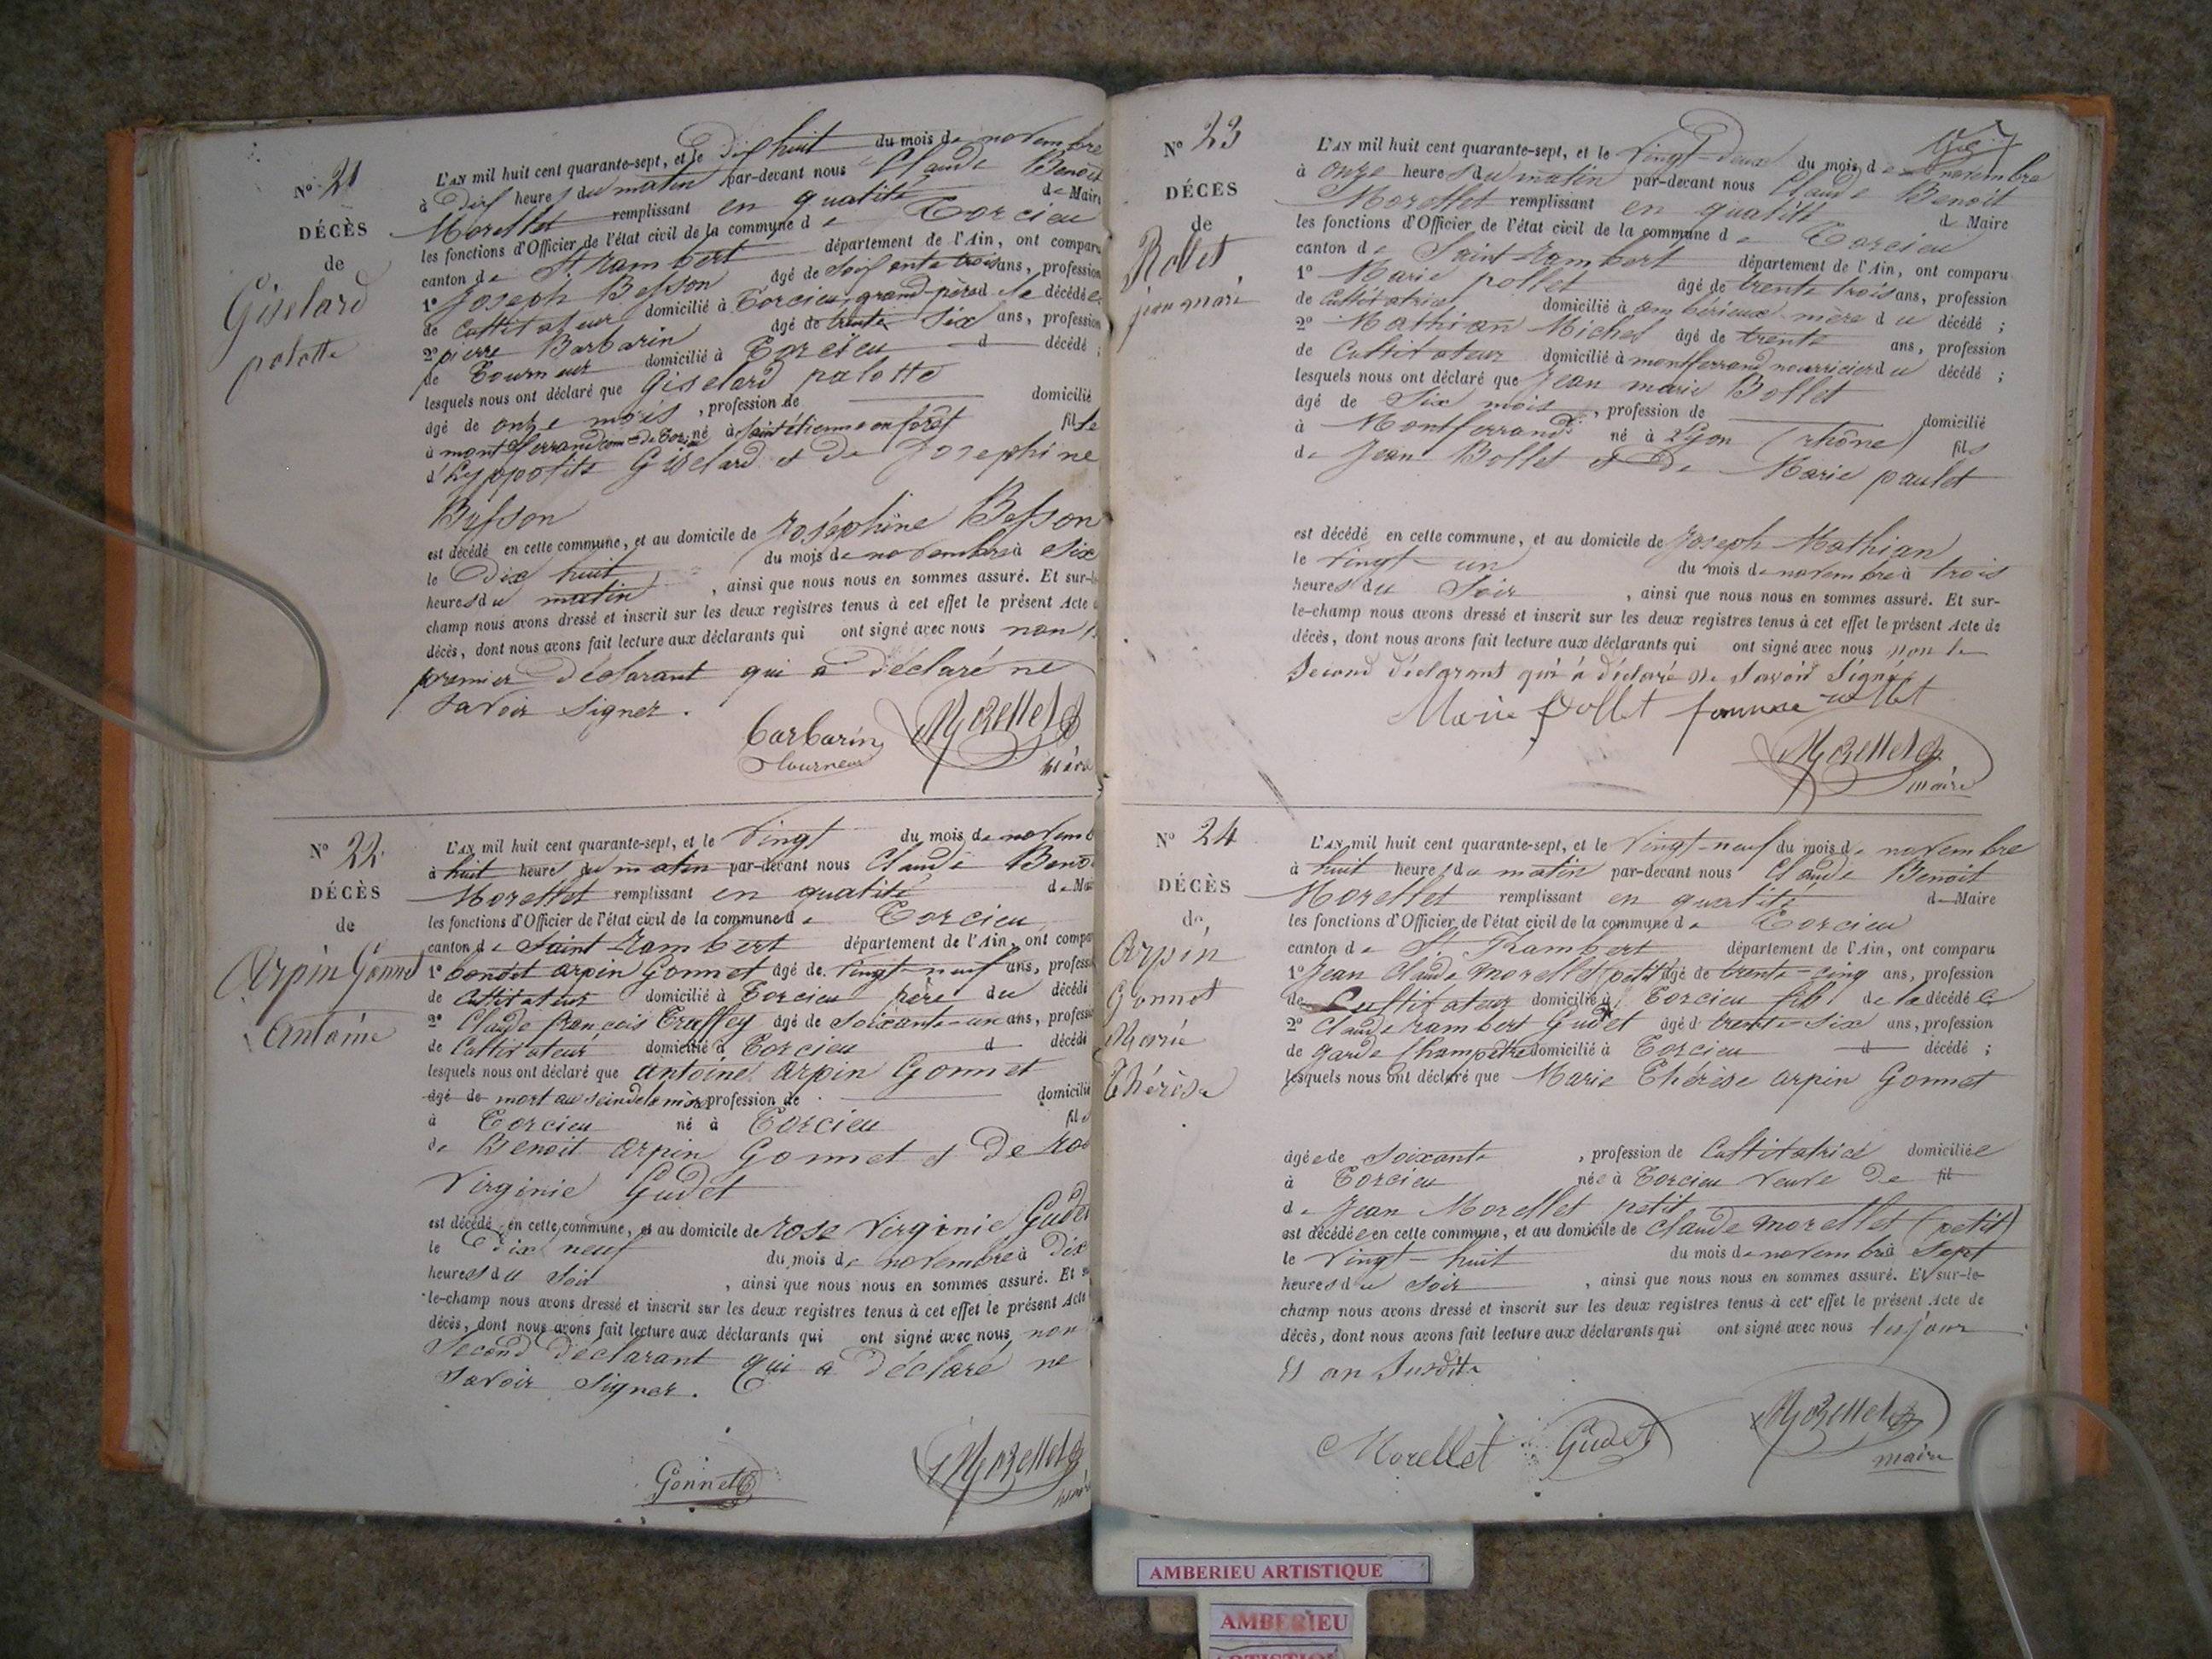 N° 21
DÉCÈS
de
Giselard
palotte
L'AN mil huit cent quarante-sept, et le dix huit du mois de novembre
à dix heures du matin par-devant nous Claude Benoit
Morellet remplissant en qualité de Maire
les fonctions d'Officier de l'état civil de la commune de Torcieu
canton de St Rambert département de l'Ain, ont comparu
1° Joseph Besson âgé de soixante trois ans, profession
de Cultivateur domicilié à Torcieu, grand-père d la décédée
2° pierre Barbarin âgé de trente six ans, profession
de Tourneur domicilié à Torcieu d décédé ;
lesquels nous ont déclaré que Giselard palotte
âgé de onze mois, profession de domicilié
à montferrand com de Torci né à Saint étienne en forêt fille
d'hyppolite Giselard et de Josephine
Besson
est décédé en cette commune, et au domicile de Joséphine Besson
le Dix huit du mois de novembre à six
heures du matin, ainsi que nous nous en sommes assuré. Et sur-le
champ nous avons dressé et inscrit sur les deux registres tenus à cet effet le présent Acte
décès, dont nous avons fait lecture aux déclarants qui ont signé avec nous non
premier déclarant qui a déclaré ne
savoir signer.
barbarin
tourneur
Morellet
maire
N° 22
DÉCÈS
de
Arpin Gonnet
Antoine
L'AN mil huit cent quarante-sept, et le vingt du mois de novemb
à huit heures du matin par-devant nous Claude Beno
Morellet remplissant en qualité de Mai
les fonctions d'Officier de l'état civil de la commune de Torcieu
canton de Saint Rambert département de l'Ain, ont compa
1° benoit arpin Gonnet âgé de vingt-neuf ans, profess
de Cultivateur domicilié à Torcieu père du décédé
2° Claude françois Truffey âgé de soixante-un ans, profess
de Cultivateur domicilié à Torcieu d décédé
lesquels nous ont déclaré que antoine arpin Gonnet
âgé de mort au sein de la mère profession de domicilié
à Torcieu né à Torcieu fils
de Benoit arpin Gonnet et de ros
Virginie Gudet
est décédé en cette commune, et au domicile de rose virginie Gudet
le dix neuf du mois de novembre à dix
heures du soir, ainsi que nous nous en sommes assuré. Et
le-champ nous avons dressé et inscrit sur les deux registres tenus à cet effet le présent Acte
décès, dont nous avons fait lecture aux déclarants qui ont signé avec nous non
second déclarant qui a déclaré ne
savoir signer.
Gonnet
Morellet
N° 23
DÉCÈS
de
Bollet
jean marie
L'AN mil huit cent quarante-sept, et le vingt-deux du mois de novembre
à onze heures du matin par-devant nous Claude Benoit
Morellet remplissant en qualité de Maire
les fonctions d'Officier de l'état civil de la commune de Torcieu
canton de Saint-Rambert département de l'Ain, ont comparu
1° Marie pollet âgé de trente trois ans, profession
de Cultivatrice domicilié à ambérieux mère du décédé ;
2° Mathian Michel âgé de trente ans, profession
de Cultivateur domicilié à montferrand nourricier du décédé ;
lesquels nous ont déclaré que Jean marie Bollet
âgé de six mois, profession de domicilié
à Montferrand né à Lyon (rhône) fils
de Jean Bollet et de Marie paulet
est décédé en cette commune, et au domicile de Joseph Mathian
le vingt-un du mois de novembre à trois
heures du soir, ainsi que nous nous en sommes assuré. Et sur-
le-champ nous avons dressé et inscrit sur les deux registres tenus à cet effet le présent Acte de
décès, dont nous avons fait lecture aux déclarants qui ont signé avec nous non le
second déclarant qui a déclaré ne savoir signé
Marie pollet femme
Morellet
maire
N° 24
DÉCÈS
de
Arpin
Gonnet
Marie
Thérèse
L'AN mil huit cent quarante-sept, et le vingt-neuf du mois de novembre
à huit heures du matin par-devant nous Claude Benoit
Morellet remplissant en qualité de Maire
les fonctions d'Officier de l'état civil de la commune de Torcieu
canton de St. Rambert département de l'Ain, ont comparu
1° Jean Claude Morellet petit âgé de trente-cinq ans, profession
de Cultivateur domicilié à Torcieu fils de la décédée
2° Claude rambert Gudet âgé d trente-six ans, profession
de garde Champêtre domicilié à Torcieu d décédé ;
lesquels nous ont déclaré que Marie Thérèse arpin Gonnet
âgée de soixante, profession de Cultivatrice domiciliée
à Torcieu née à Torcieu veuve de fil
de Jean Morellet petit
est décédée en cette commune, et au domicile de Claude Morellet (petit)
le vingt-huit du mois de novembre à sept
heures du soir, ainsi que nous nous en sommes assuré. Et sur-le-
champ nous avons dressé et inscrit sur les deux registres tenus à cet effet le présent Acte de
décès, dont nous avons fait lecture aux déclarants qui ont signé avec nous les jour
et an susdits
Morellet Gudet Morellet
maire
AMBERIEU ARTISTIQUE
AMBERIEU
ARTISTIQUE